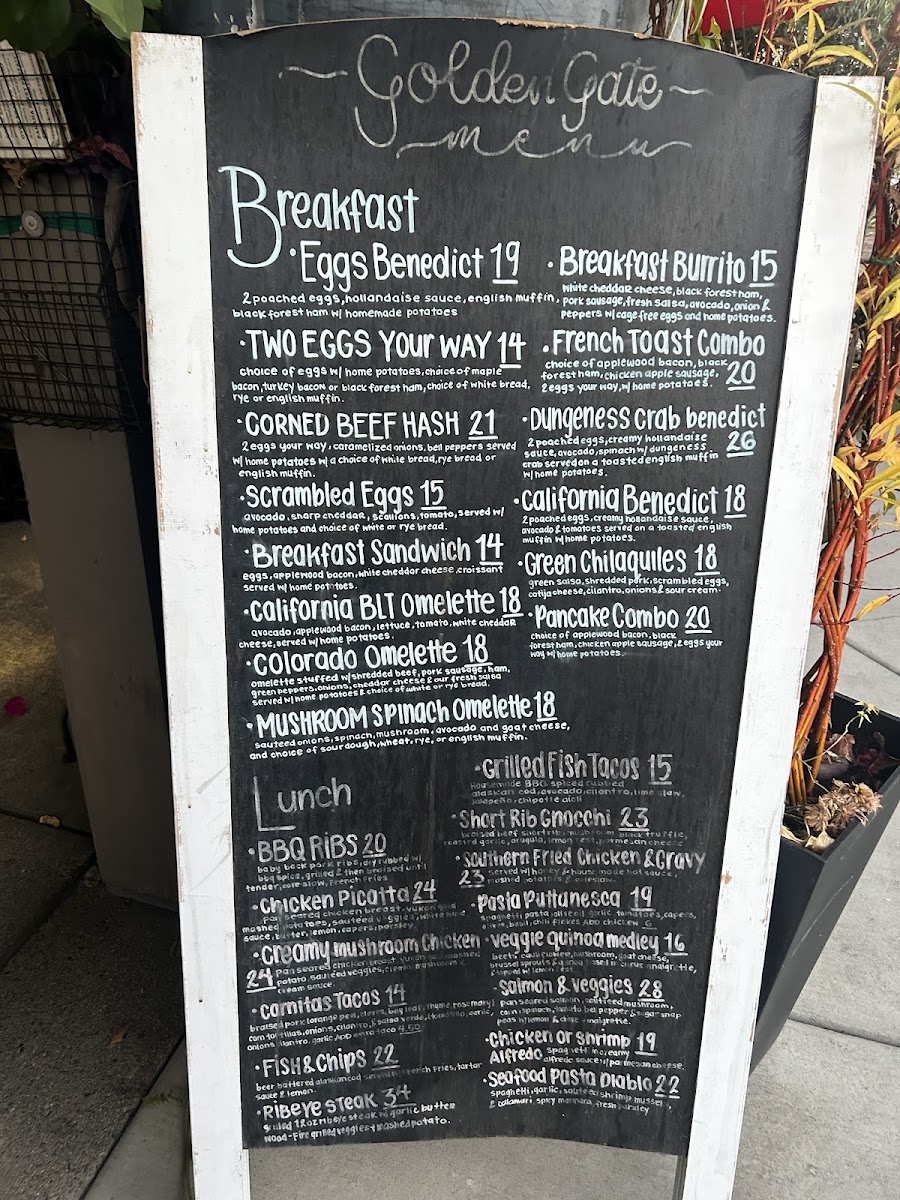 Golden Gate
menu
Breakfast
·Eggs Benedict 19
2 poached eggs, hollandaise sauce, english muffin,
black forest ham w/ homemade potatoes
·TWO EGGS YOUR WAY 14
choice of eggs w/ home potatoes, choice of maple
bacon, turkey bacon or black forest ham, choice of white bread,
rye or english muffin.
·CORNED BEEF HASH 21
2 eggs your way, caramelized onions, bell peppers served
w/ home potatoes w/ a choice of white bread, rye bread or
english muffin.
·Scrambled Eggs 15
avocado, sharp cheddar, scallions, tomato, served w/
home potatoes and choice of white or rye bread.
·Breakfast Sandwich 14
eggs, applewood bacon, white cheddar cheese, croissant
served w/ home potatoes.
·California BLT Omelette 18
avocado, applewood bacon, lettuce, tomato, white cheddar
cheese, served w/ home potatoes.
·Colorado Omelette 18
omelette stuffed w/ shredded beef, pork sausage, ham,
green peppers, onions, cheddar cheese & our fresh salsa
served w/ home potatoes & choice of white or rye bread.
·MUSHROOM SPINACH Omelette 18
sauteed onions, spinach, mushroom, avocado and goat cheese,
and choice of sourdough, wheat, rye, or english muffin.
·Breakfast Burrito 15
white cheddar cheese, black forest ham,
pork sausage, fresh salsa, avocado, onion &
peppers w/ cage free eggs and home potatoes.
·French Toast Combo
choice of applewood bacon, black
forest ham, chicken apple sausage, 20
2 eggs your way, w/ home potatoes.
·Dungeness crab benedict
2 poached eggs, creamy hollandaise 26
sauce, avocado, spinach w/ dungeness
crab served on a toasted english muffin
w/ home potatoes.
·California Benedict 18
2 poached eggs, creamy hollandaise sauce,
avocado & tomatoes served on a toasted english
muffin w/ home potatoes.
·Green Chilaquiles 18
green salsa, shredded pork, scrambled eggs,
cotija cheese, cilantro, onions & sour cream.
·Pancake Combo 20
choice of applewood bacon, black
forest ham, chicken apple sausage, 2 eggs your
way w/ home potatoes.
Lunch
·BBQ RIBS 20
baby back pork ribs, dry rubbed w/
bbq spice, grilled & then braised until
tender, cole slaw, French Fries
·Chicken Picatta 24
Pan seared chicken breast, yukon gold
mashed potatoes, sauteed veggies, white wine
sauce, butter, lemon, capers, parsley
·Creamy mushroom Chicken
24 Pan seared chicken breast, yukon gold mashed
potato, sauteed veggies, cremini mushroom &
cream sauce.
·Carnitas Tacos 14
braised pork, orange peel, cloves, bay leaf, thyme, rosemary
corn tortillas, onions, cilantro, & salsa verde, garlic,
onions, cilantro, garlic ADD extra taco 4.50
·FISH & Chips 22
beer battered alaskan cod served w/ French fries, tartar
sauce & lemon.
·Ribeye Steak 34
grilled 12oz ribeye steak w/ garlic butter
wood-fire grilled veggies & mashed potato.
·Grilled Fish Tacos 15
Housemade BBQ spiced rubbed
alaskan cod, avocado, cilantro, lime slaw,
jalapeño, chipotle aioli
·Short Rib Gnocchi 23
braised beef short rib, mushroom, black truffle,
roasted garlic, arugula, lemon zest, parmesan cheese
·Southern Fried Chicken & Gravy
23 served w/ honey & house made hot sauce,
mashed potatoes & coleslaw.
·Pasta Puttanesca 19
spaghetti pasta, olive oil, garlic, tomatoes, capers,
olives, basil, chili flakes ADD chicken 6
·Veggie quinoa medley 16
beets, cauliflower, mushroom, goat cheese,
brussel sprouts & quinoa tossed in citrus vinaigrette,
& topped w/ lemon zest.
·Salmon & Veggies 28
pan seared salmon, sauteed mushroom,
corn, spinach, tomato, bell pepper & sugar snap
peas w/ lemon & citrus vinaigrette.
·Chicken or Shrimp 19
Alfredo spaghetti in creamy
alfredo sauce w/ parmesan cheese.
·Seafood Pasta Diablo 22
spaghetti, garlic, sauteed shrimp, mussel,
& calamari, spicy marinara, fresh parsley